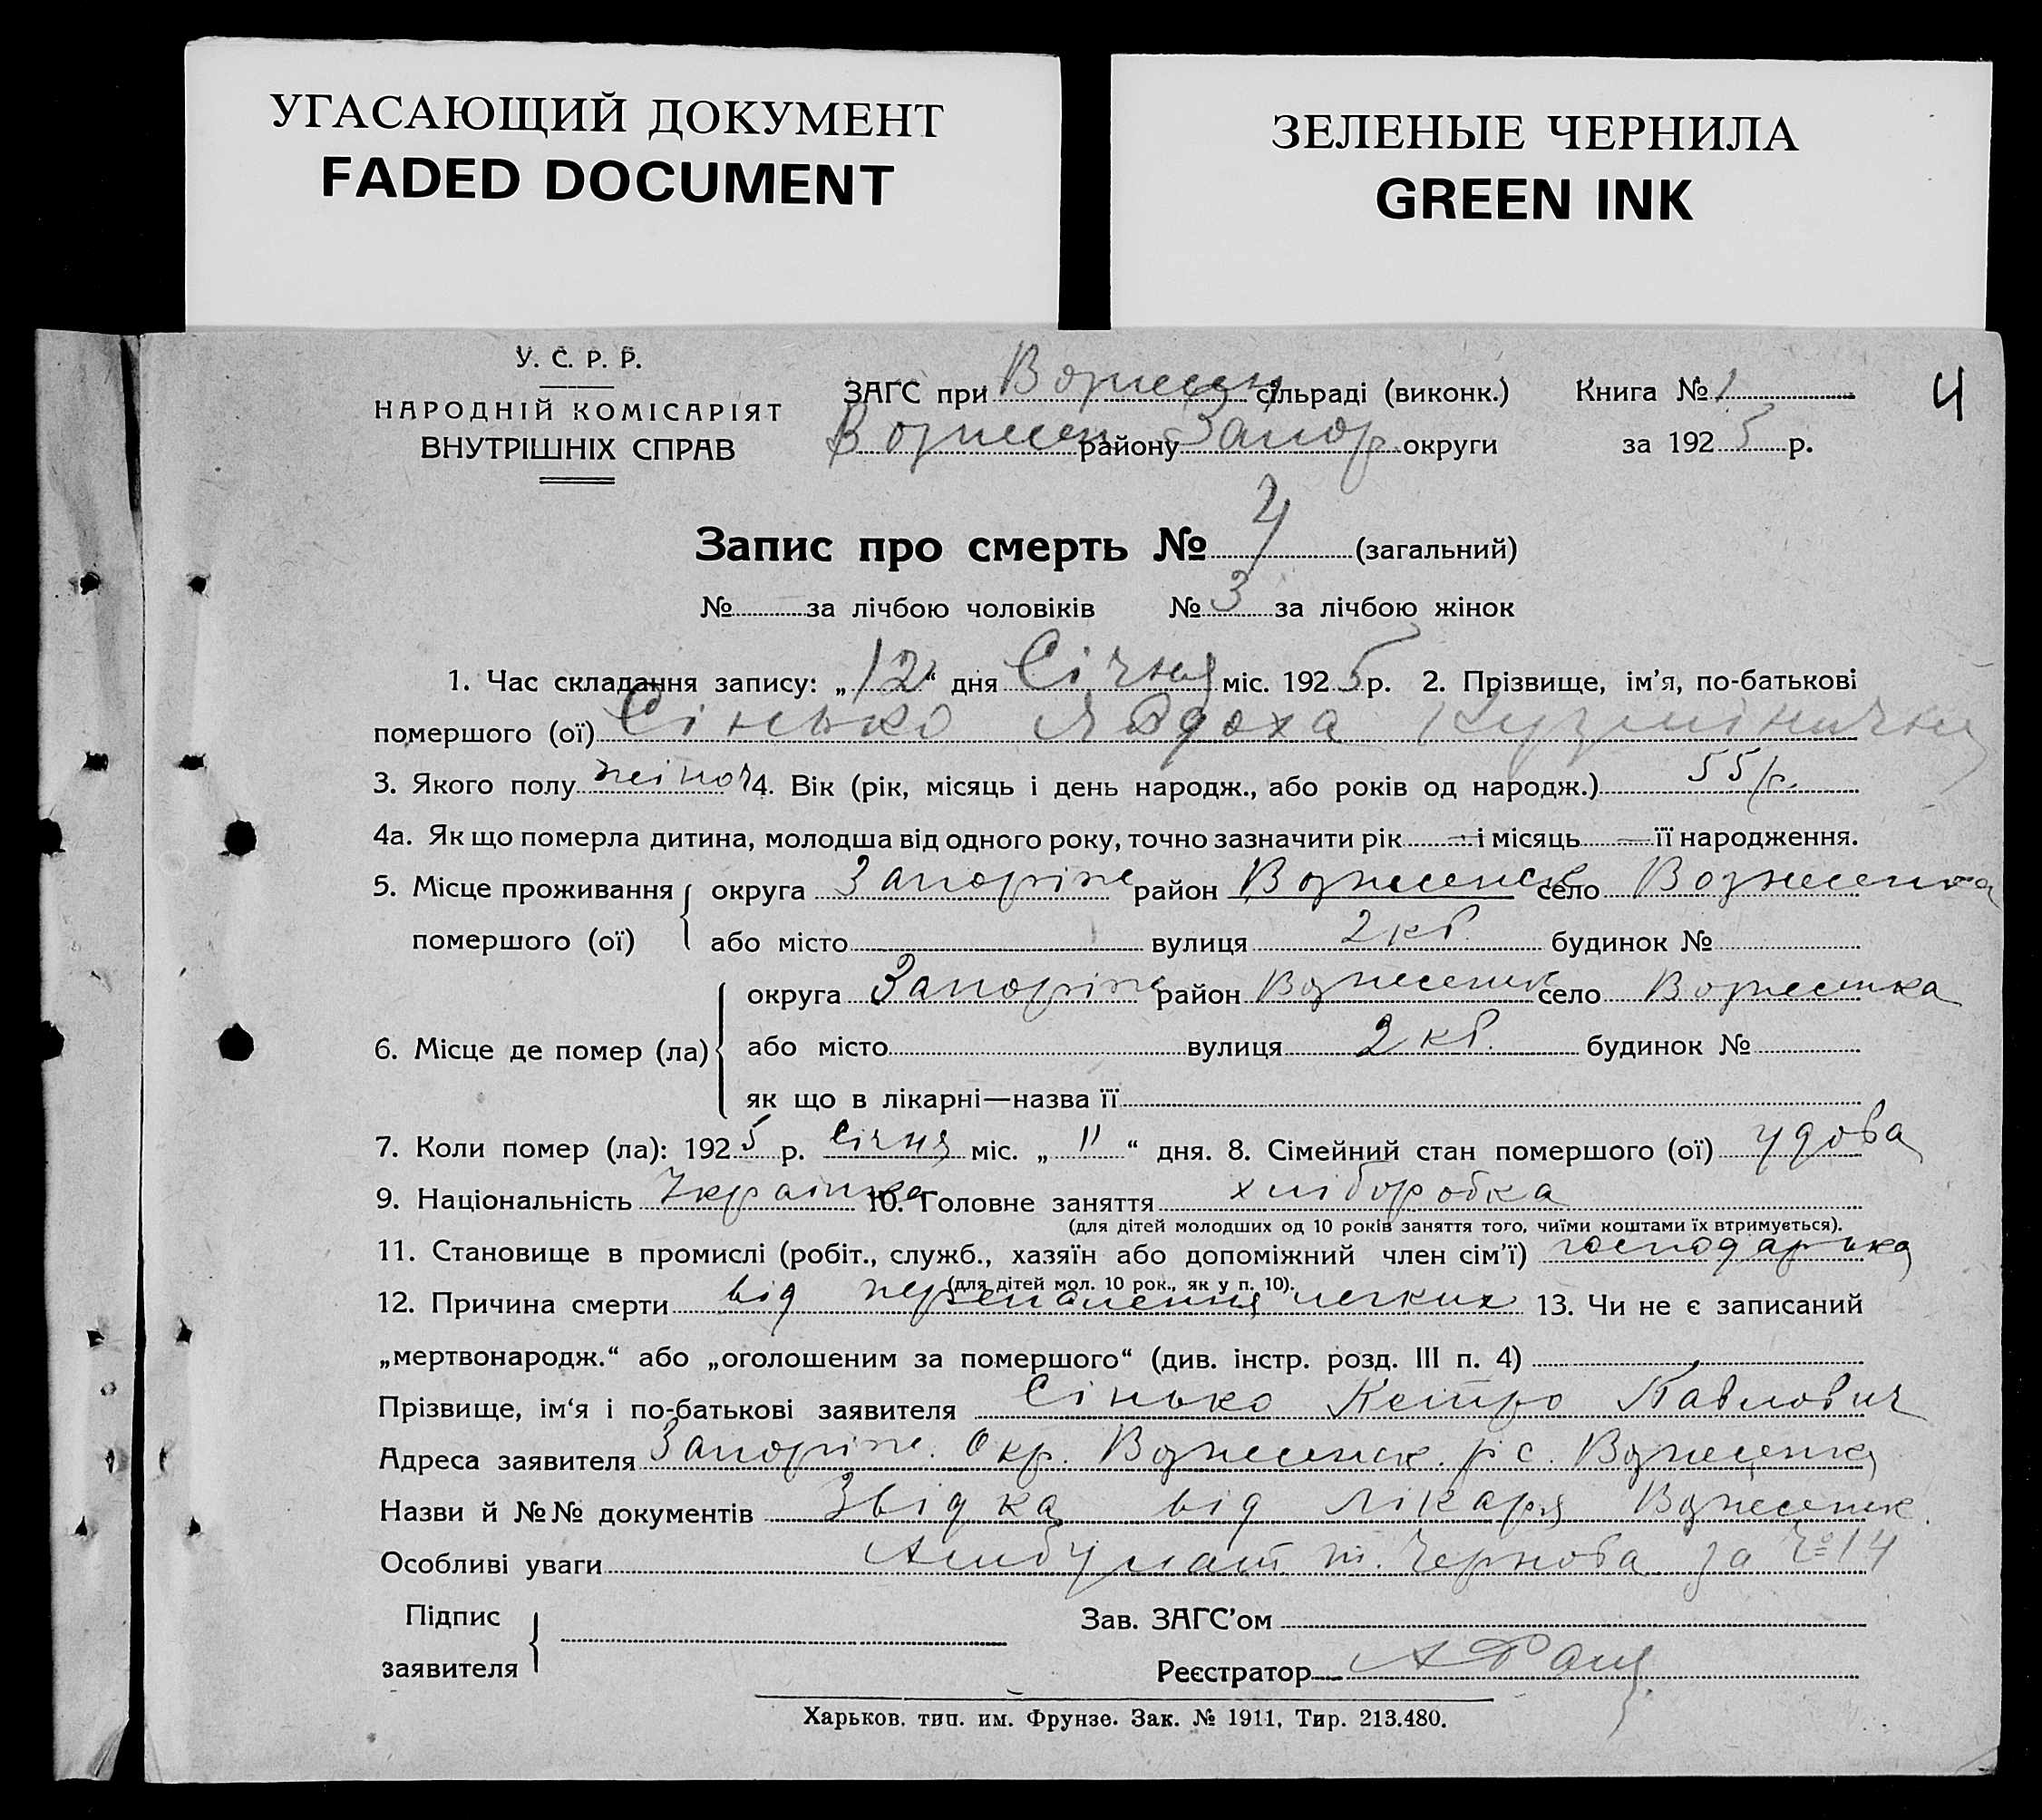 УГАСАЮЩИЙ ДОКУМЕНТ
FADED DOCUMENT
ЗЕЛЕНЫЕ ЧЕРНИЛА
GREEN INK
У. С. Р. Р.
НАРОДНІЙ КОМІСАРІЯТ
ВНУТРІШНІХ СПРАВ
ЗАГС при Вознесен сільраді (виконк.) Книга № 1
Вознесен району Запор округи за 1925 р.
4
Запис про смерть № 4 (загальний)
№ за лічбою чоловіків № 3 за лічбою жінок
1. Час складання запису: „12“ дня Січня міс. 1925 р. 2. Прізвище, ім’я, по-батькові
помершого (ої) Сінько Явдоха Кузмінична
3. Якого полу жіноч 4. Вік (рік, місяць і день народж., або років од народж.) 55 р.
4а. Як що померла дитина, молодша від одного року, точно зазначити рік — і місяць — її народження.
5. Місце проживання округа Запоріж район Вознесенск село Вознесенка
помершого (ої) або місто вулиця 2 кв. будинок №
округа Запоріж район Вознесенск село Вознесенка
6. Місце де помер (ла) або місто вулиця 2 кв. будинок №
як що в лікарні—назва її
7. Коли помер (ла): 1925 р. Січня міс. „11“ дня. 8. Сімейний стан помершого (ої) удова
9. Національність Українка 10. Головне заняття хліборобка
(для дітей молодших од 10 років заняття того, чиїми коштами їх втримується).
11. Становище в промислі (робіт., служб., хазяїн або допоміжний член сім’ї) господарька
(для дітей мол. 10 рок., як у п. 10).
12. Причина смерти від перепалення легких 13. Чи не є записаний
„мертвонародж.“ або „оголошеним за помершого“ (див. інстр. розд. III п. 4)
Прізвище, ім‘я і по-батькові заявителя Сінько Петро Павлович
Адреса заявителя Запоріж. Окр. Вознесенск. р с. Вознесенка
Назви й №№ документів Звідка від лікаря Вознесенск.
Особливі уваги Амбулат т. Чернова за № 14
Підпис
заявителя
Зав. ЗАГС’ом
Реєстратор
Харьков. тип. им. Фрунзе. Зак. № 1911, Тир. 213.480.